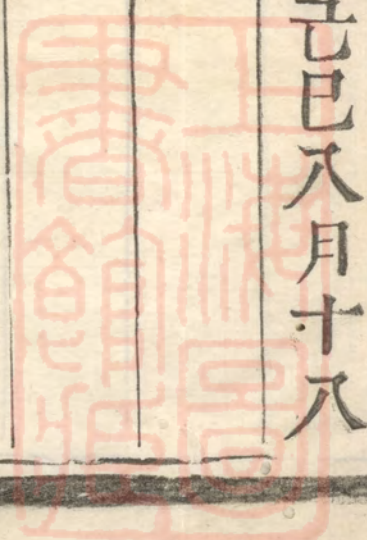 乙巳八月十八
上海圖
書館藏